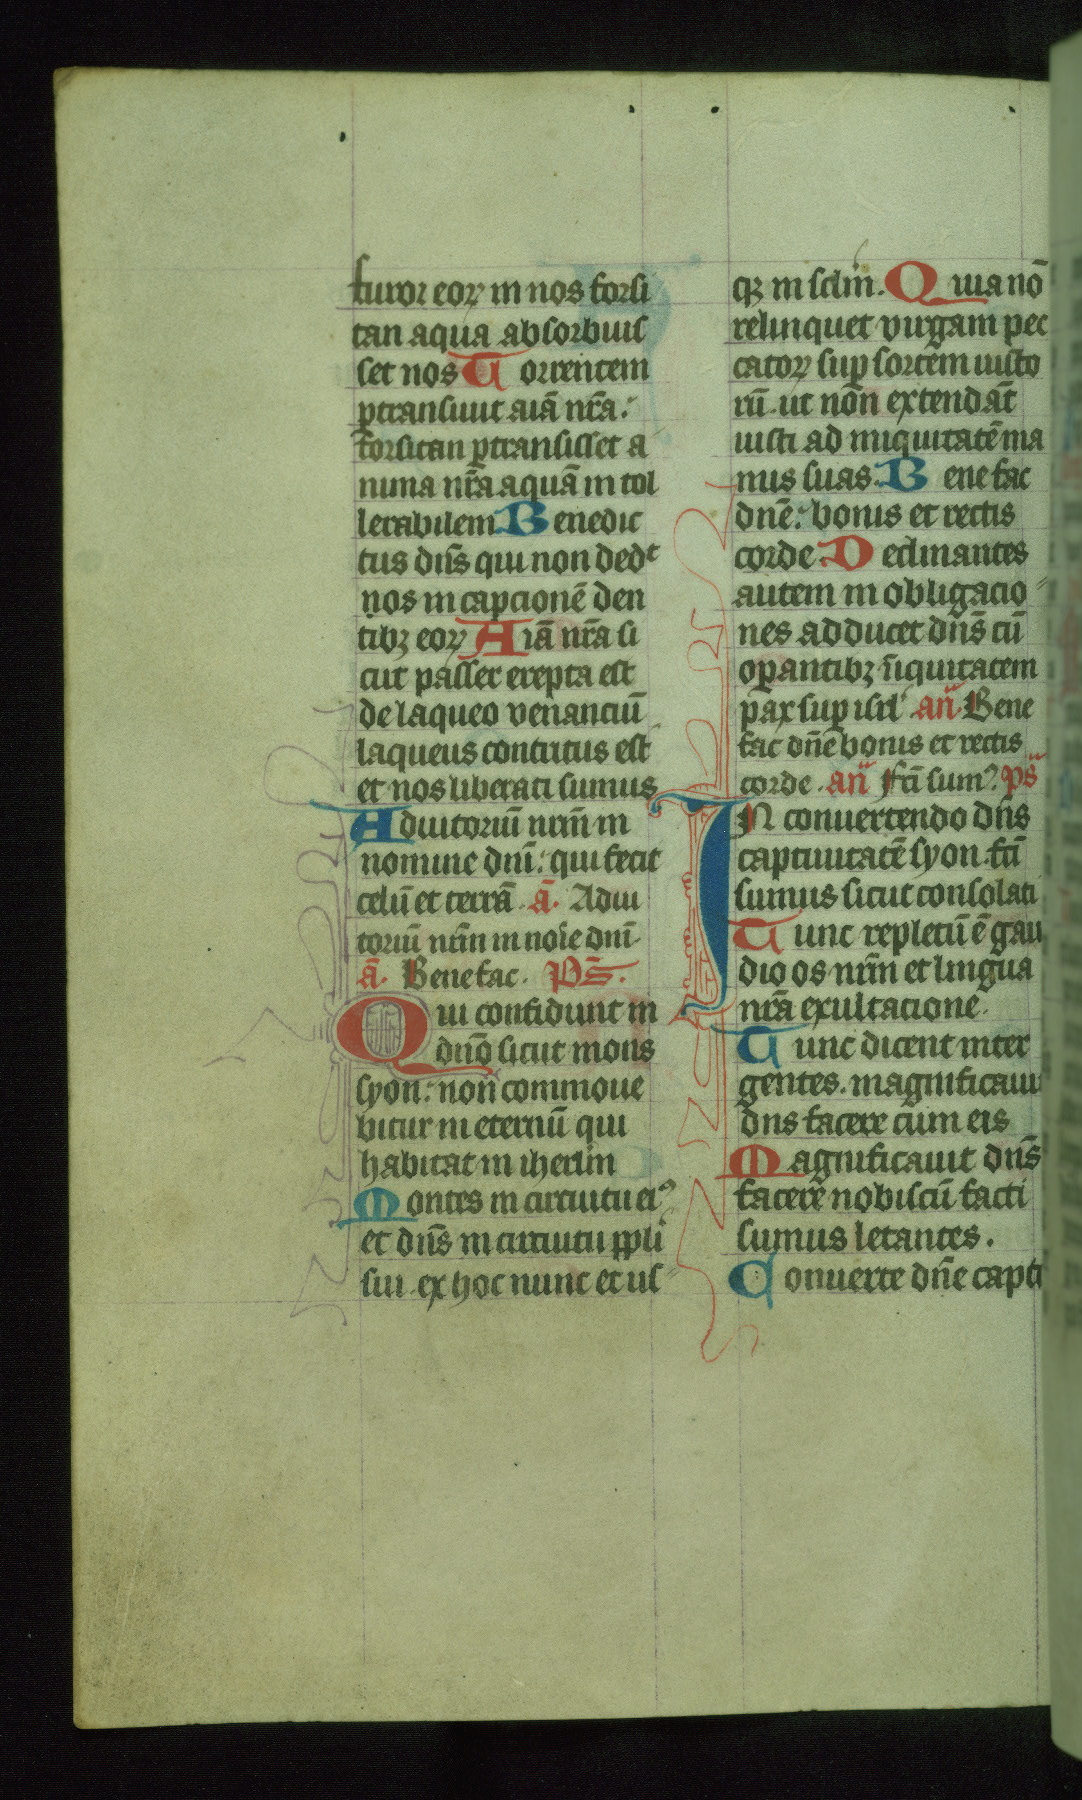 furor eoꝝ in nos forsi
tan aqua absorbuis
set nos Torrentem
ꝑtransiuit aīā nr̄a:
forsitan ꝑtransisset a
nima nr̄a aquā in tol
lerabilem Benedic
tus dn̄s qui non dedᵗ
nos in capcionē den
tibꝫ eoꝝ Aīā nr̄a si
cut passer erepta est
de laqueo venanciū
laqueus contritus est
et nos liberati sumus
Adiutoriū nr̄m in
nomine dn̄i: qui fecit
celū et terrā. ā. Adiu
toriū nr̄m in noīe dn̄i.
ā. Benefac. Ps̄.
Qui confidunt in
dn̄o sicut mons
syon: non commoue
bitur in eternū qui
habitat in iherlm̄
Montes in circuitu eiꝰ
et dn̄s in circuitu ppl̄i
sui. ex hoc nunc et us
qꝫ in sclm̄. Quia nō
relinquet virgam pec
catoꝝ suꝑ sortem iusto
rū. ut non extendāt
iusti ad iniquitatē ma
nus suas. Benefac
dn̄e: bonis et rectis
corde. Declinantes
autem in obligacio
nes adducet dn̄s cū
oꝑantibꝫ iniquitatem
pax suꝑ isrl̄ an̄ Bene
fac dn̄e bonis et rectis
corde. an̄ Fc̄i sumꝰ. ps̄
IN conuertendo dn̄s
captiuitatē syon. fc̄i
sumus sicut consolati
Tunc repletū ē gau
dio os nr̄m et lingua
nr̄a exultacione.
Tunc dicent inter
gentes. magnificauit
dn̄s facere cum eis
Magnificauit dn̄s
facere nobiscū facti
sumus letantes.
Conuerte dn̄e capti